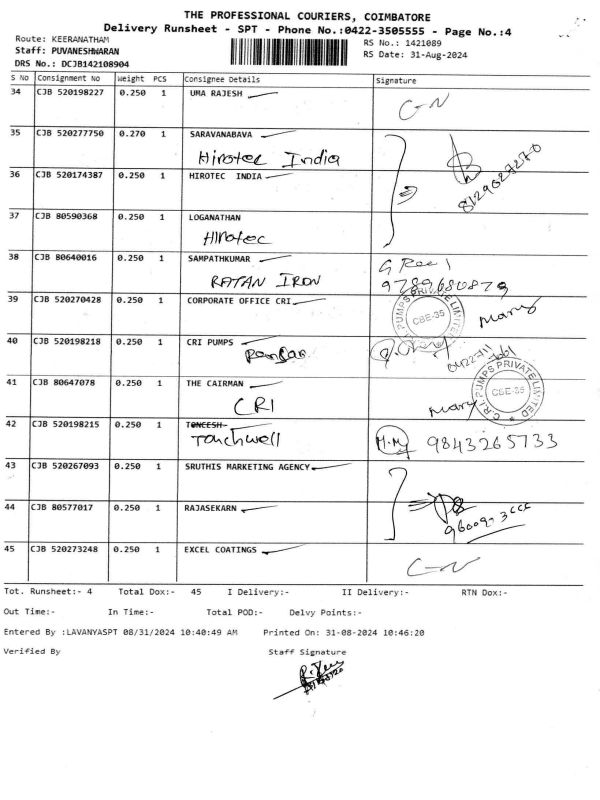 THE PROFESSIONAL COURIERS, COIMBATORE
Delivery Runsheet - SPT - Phone No.:0422-3505555 - Page No.:4
Route: KEERANATHAM
RS No.: 1421089
Staff: PUVANESHWARAN
RS Date: 31-Aug-2024
DRS No.: DCJB142108904
S No Consignment No Weight PCS Consignee Details Signature
34 CJB 520198227 0.250 1 UMA RAJESH
C-N
35 CJB 520277750 0.270 1 SARAVANABAVA
Hirotec India
36 CJB 520174387 0.250 1 HIROTEC INDIA
37 CJB 80590368 0.250 1 LOGANATHAN
Hirotec
38 CJB 80640016 0.250 1 SAMPATHKUMAR
RATAN IRON
39 CJB 520270428 0.250 1 CORPORATE OFFICE CRI
C.R.I. PUMPS PRIVATE LIMITED
CBE-35
Mary
40 CJB 520198218 0.250 1 CRI PUMPS
41 CJB 80647078 0.250 1 THE CAIRMAN
CRI
Mary
C.R.I. PUMPS PRIVATE LIMITED
CBE-35
42 CJB 520198215 0.250 1 TONCEESH
Touchwell
9843265733
43 CJB 520267093 0.250 1 SRUTHIS MARKETING AGENCY
44 CJB 80577017 0.250 1 RAJASEKARN
45 CJB 520273248 0.250 1 EXCEL COATINGS
C-N
Tot. Runsheet:- 4 Total Dox:- 45 I Delivery:- II Delivery:- RTN Dox:-
Out Time:- In Time:- Total POD:- Delvy Points:-
Entered By :LAVANYASPT 08/31/2024 10:40:49 AM Printed On: 31-08-2024 10:46:20
Verified By Staff Signature